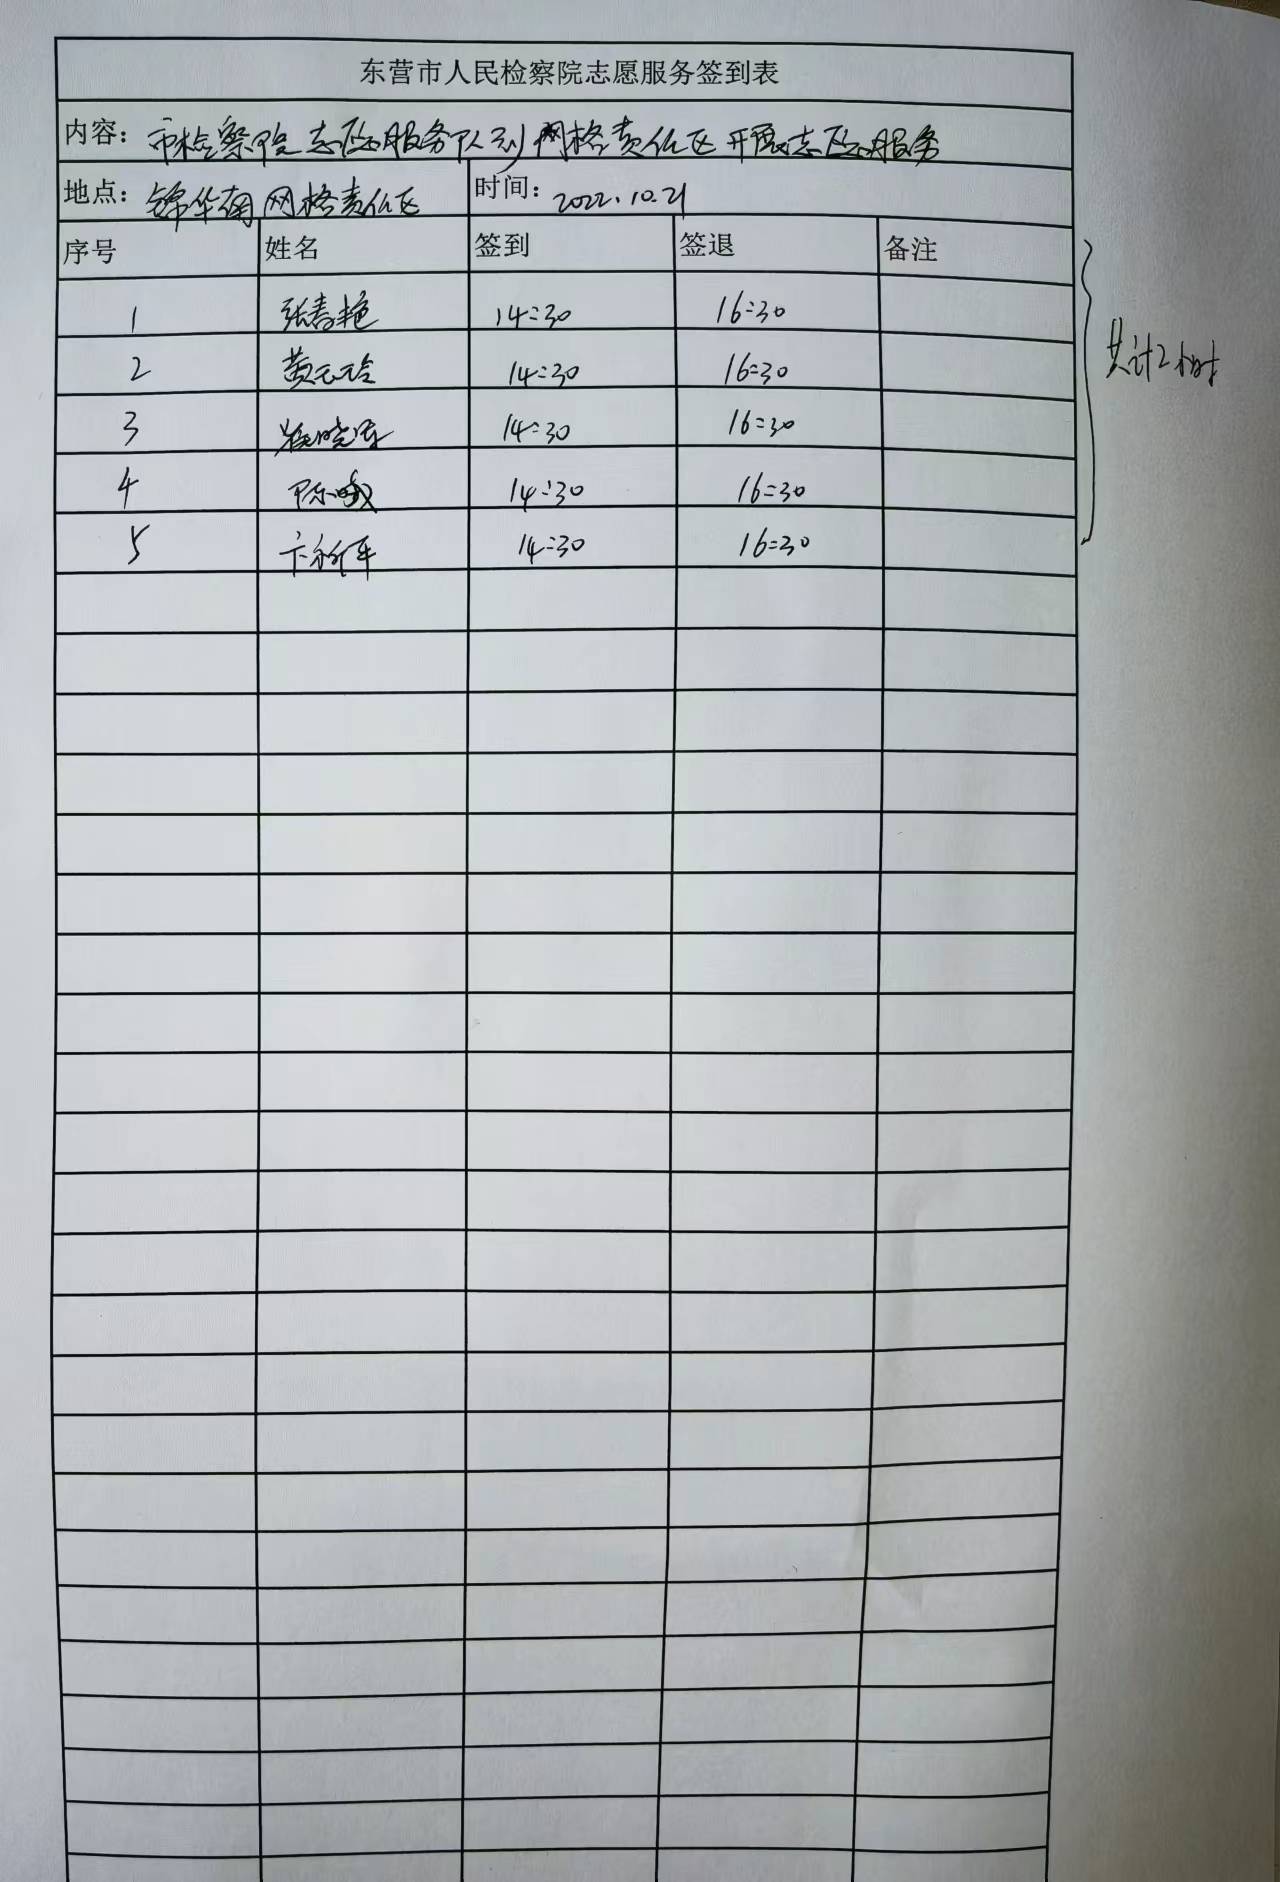 东营市人民检察院志愿服务签到表
内容：市检察院志愿服务队到网格责任区开展志愿服务
地点：锦华南网格责任区 时间：2022.10.21
序号 姓名 签到 签退 备注
1 张春艳 14:30 16:30
2 黄云玲 14:30 16:30
3 14:30 16:30
4 14:30 16:30
5 14:30 16:30
共计2小时